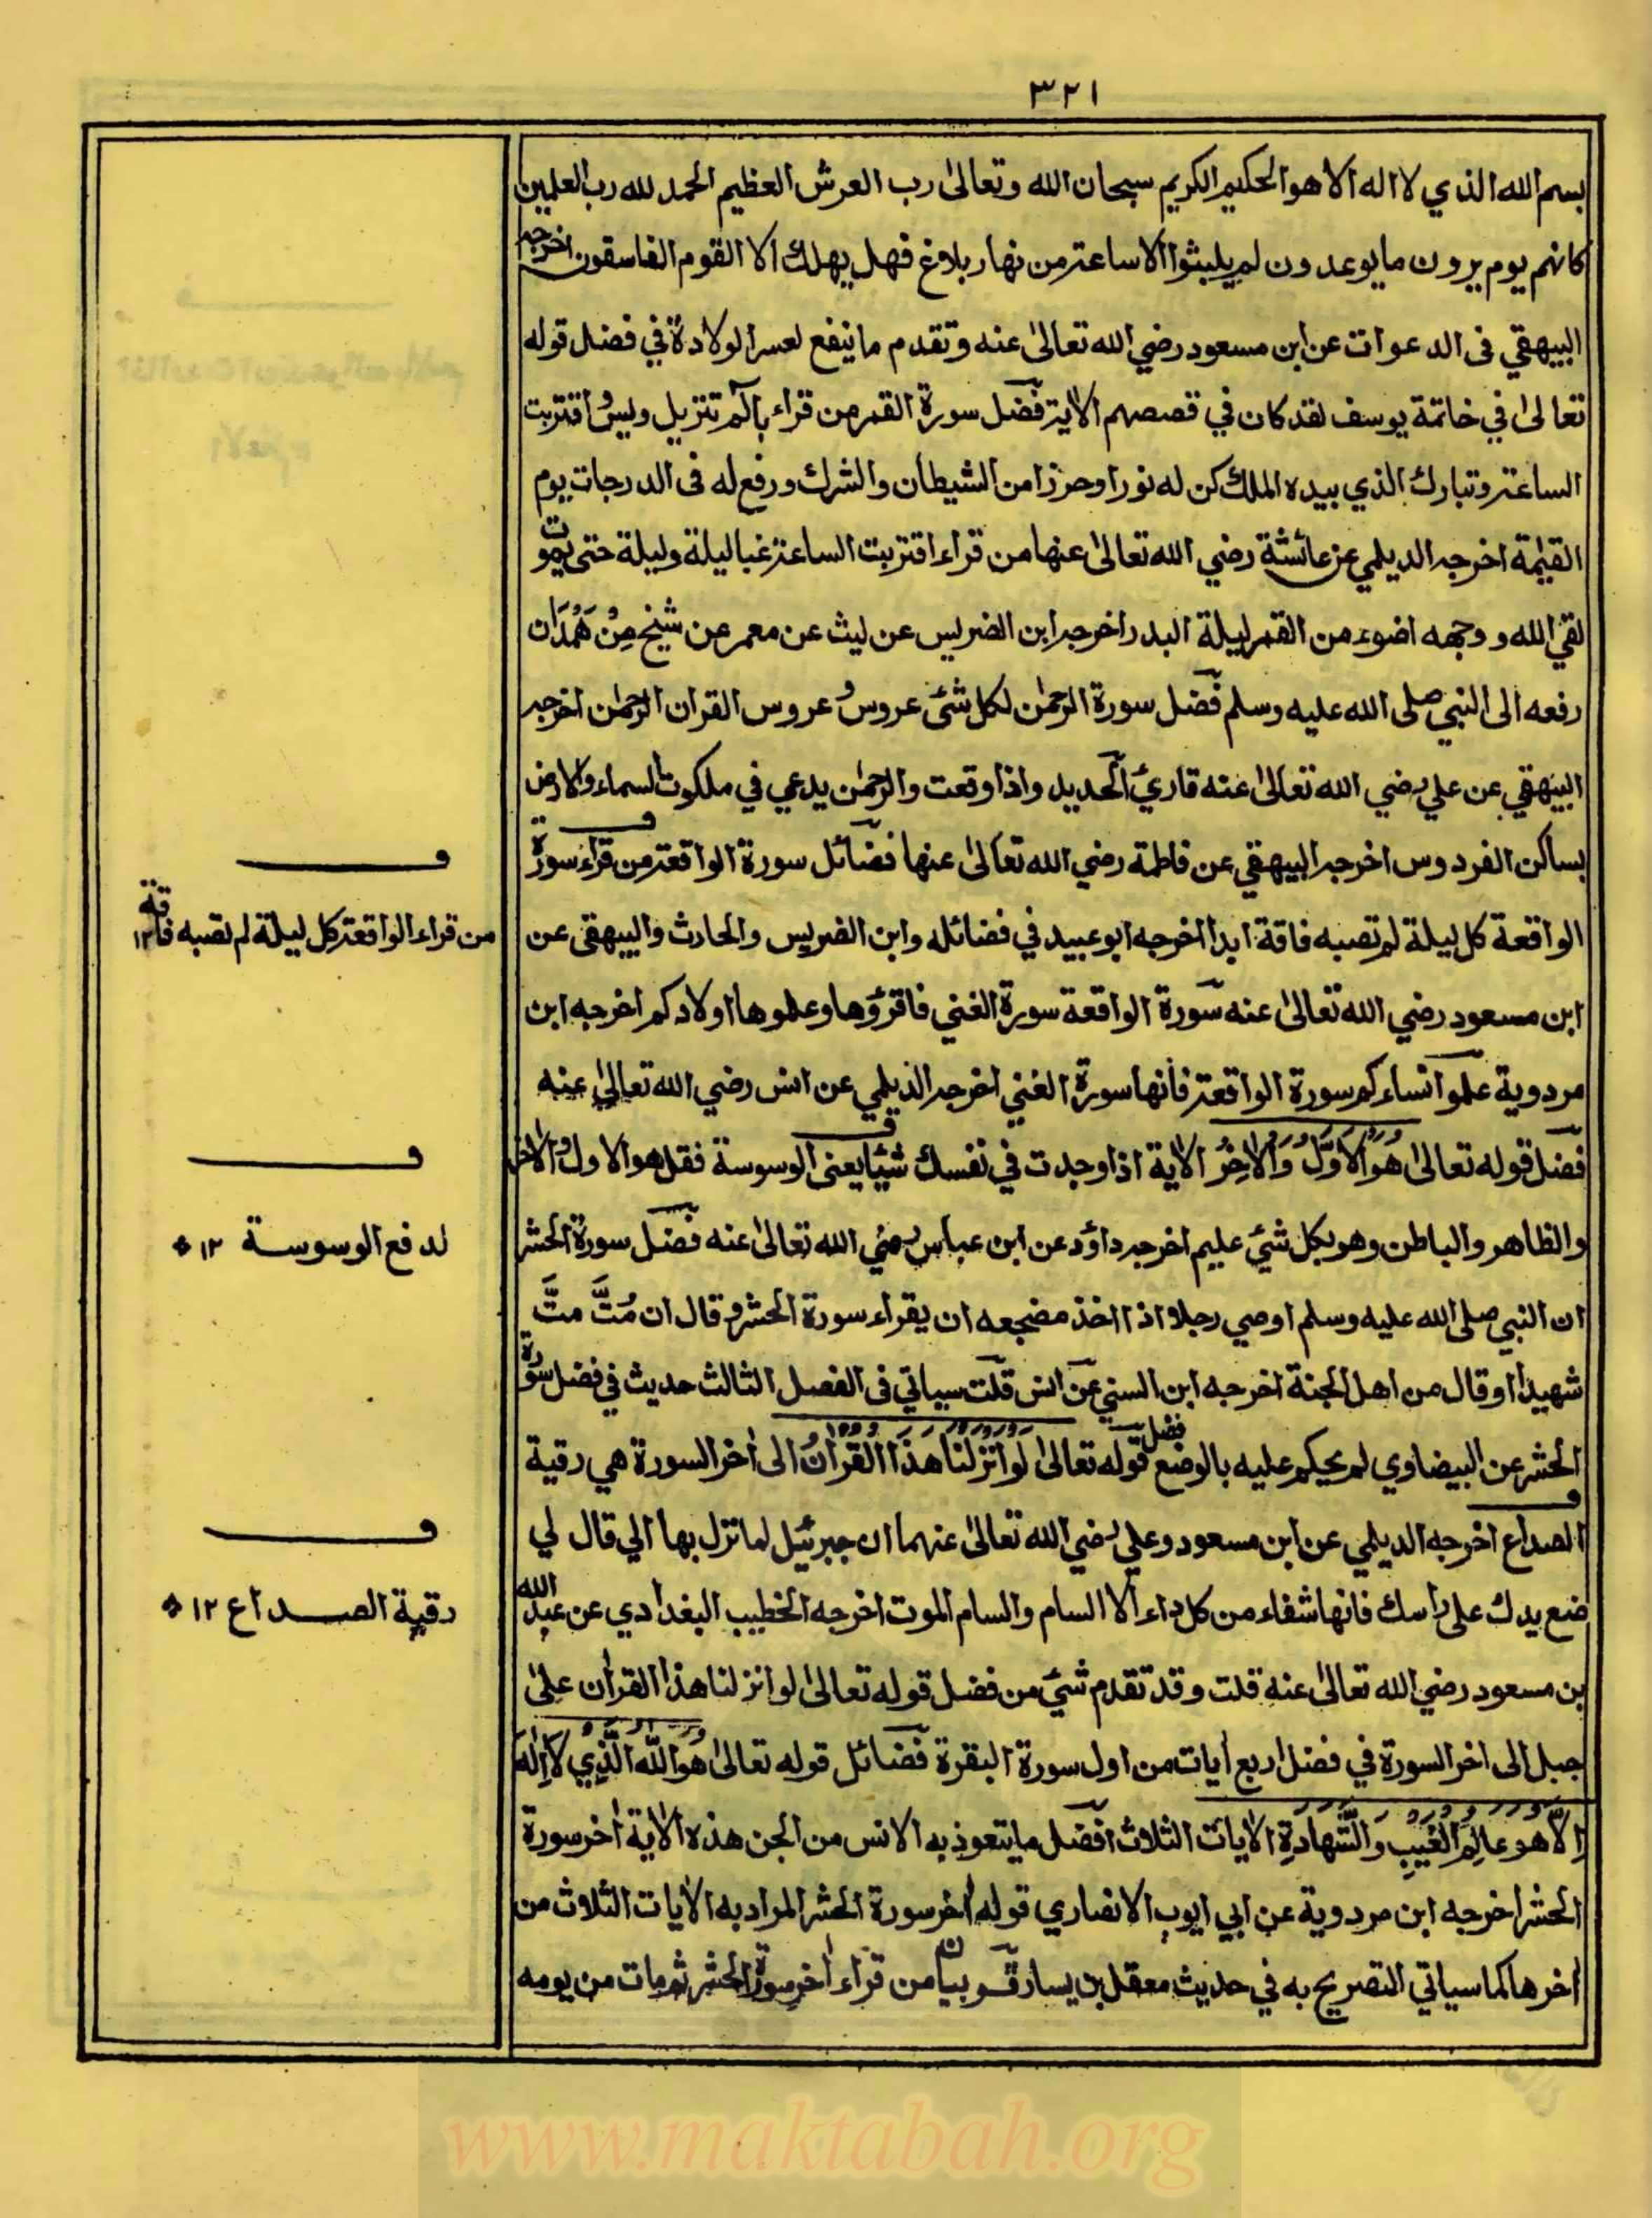 ٣٢١
بسم الله الذي لا اله الا هو الحكيم الكريم سبحان الله وتعالىٰ رب العرش العظيم الحمد لله رب العلمين
كانهم يوم يرون ما يوعدون لم يلبثوا الا ساعة من نهار بلاغ فهل يهلك الا القوم الفاسقون اخرجه
البيهقي فى الدعوات عن ابن مسعود رضي الله تعالىٰ عنه وتقدم ما ينفع لعسر الولادة في فضل قوله
تعالىٰ في خاتمة يوسف لقد كان في قصصهم الاية فضل سورة القمر من قراء بالٓم تنزيل ويس واقتربت
الساعة وتبارك الذي بيده الملك كن له نورا وحرزا من الشيطان والشرك ورفع له فى الدرجات يوم
القيٰمة اخرجه الديلمي عن عائشة رضي الله تعالىٰ عنها من قراء اقتربت الساعة غبا ليلة وليلة حتى يموت
لقي الله ووجهه اضوء من القمر ليلة البدر اخرجه ابن الضريس عن ليث عن معمر عن شيخ مِنْ هَمْدَان
رفعه الى النبي صلى الله عليه وسلم فضل سورة الرحمٰن لكل شئ عروسٌ وعروس القران الرحمٰن اخرجه
البيهقي عن علي رضي الله تعالىٰ عنه قاريُ الحديد واذا وقعت والرحمٰن يدعي في ملكوت السماء والارض
بساكن الفردوس اخرجه البيهقي عن فاطمة رضي الله تعالىٰ عنها فضائل سورة الواقعة من قراء سورة
الواقعة كل ليلة لم تصبه فاقة ابدا اخرجه ابو عبيد في فضائله وابن الضريس والحارث والبيهقي عن
من قراء الواقعة كل ليلة لم تصبه فاقة ١٢
ابن مسعود رضي الله تعالىٰ عنه سورة الواقعة سورة الغني فاقرؤها وعلموها اولادكم اخرجه ابن
مردوية علموا نساءكم سورة الواقعة فانها سورة الغني اخرجه الديلمي عن انس رضي الله تعالىٰ عنه
فضل قوله تعالىٰ هُوَ الْاَوَّلُ وَالْاٰخِرُ الاٰية اذا وجدت في نفسك شيئا يعنى الوسوسة فقل هو الاول والاٰخر
والظاهر والباطن وهو بكل شيء عليم اخرجه داؤد عن ابن عباس رضي الله تعالىٰ عنه فضل سورة الحشر
لدفع الوسوسة ١٢
ان النبي صلى الله عليه وسلم اوصي رجلا اذا اخذ مضجعه ان يقراء سورة الحشر وقال ان مُتَّ متَّ
شهيدا او قال من اهل الجنة اخرجه ابن السني عن انس قلت سياتي فى الفصل الثالث حديث في فضل سورة
الحشر عن البيضاوي لم يحكم عليه بالوضع فضل قوله تعالىٰ لَوْ اَنْزَلْنَا هٰذَا الْقُرْاٰنَ الى اٰخر السورة هي رقية
الصداع اخرجه الديلمي عن ابن مسعود وعلي رضي الله تعالىٰ عنهما ان جبرئيل لما نزل بها الي قال لي
ضع يدك على راسك فانها شفاء من كل داء الا السام والسام الموت اخرجه الخطيب البغدادي عن عبد الله
رقية الصداع ١٢
بن مسعود رضي الله تعالىٰ عنه قلت وقد تقدم شيء من فضل قوله تعالىٰ لو انزلنا هذا القراٰن علىٰ
جبل الى اخر السورة في فضل اربع اٰيات من اول سورة البقرة فضائل قوله تعالىٰ هُوَ اللّٰهُ الَّذِيْ لَا اِلٰهَ
اِلَّا هُوَ عَالِمُ الْغَيْبِ وَالشَّهَادَةِ الاٰيات الثلاث افضل ما يتعوذ به الانس من الجن هذه الاٰية اٰخر سورة
الحشر اخرجه ابن مردوية عن ابي ايوب الانصاري قوله اٰخر سورة الحشر المراد به الاٰيات الثلاث من
اٰخرها كما سياتي التصريح به في حديث معقل بن يسار من قراء اٰخر سورة الحشر ثم مات من يومه
www.maktabah.org